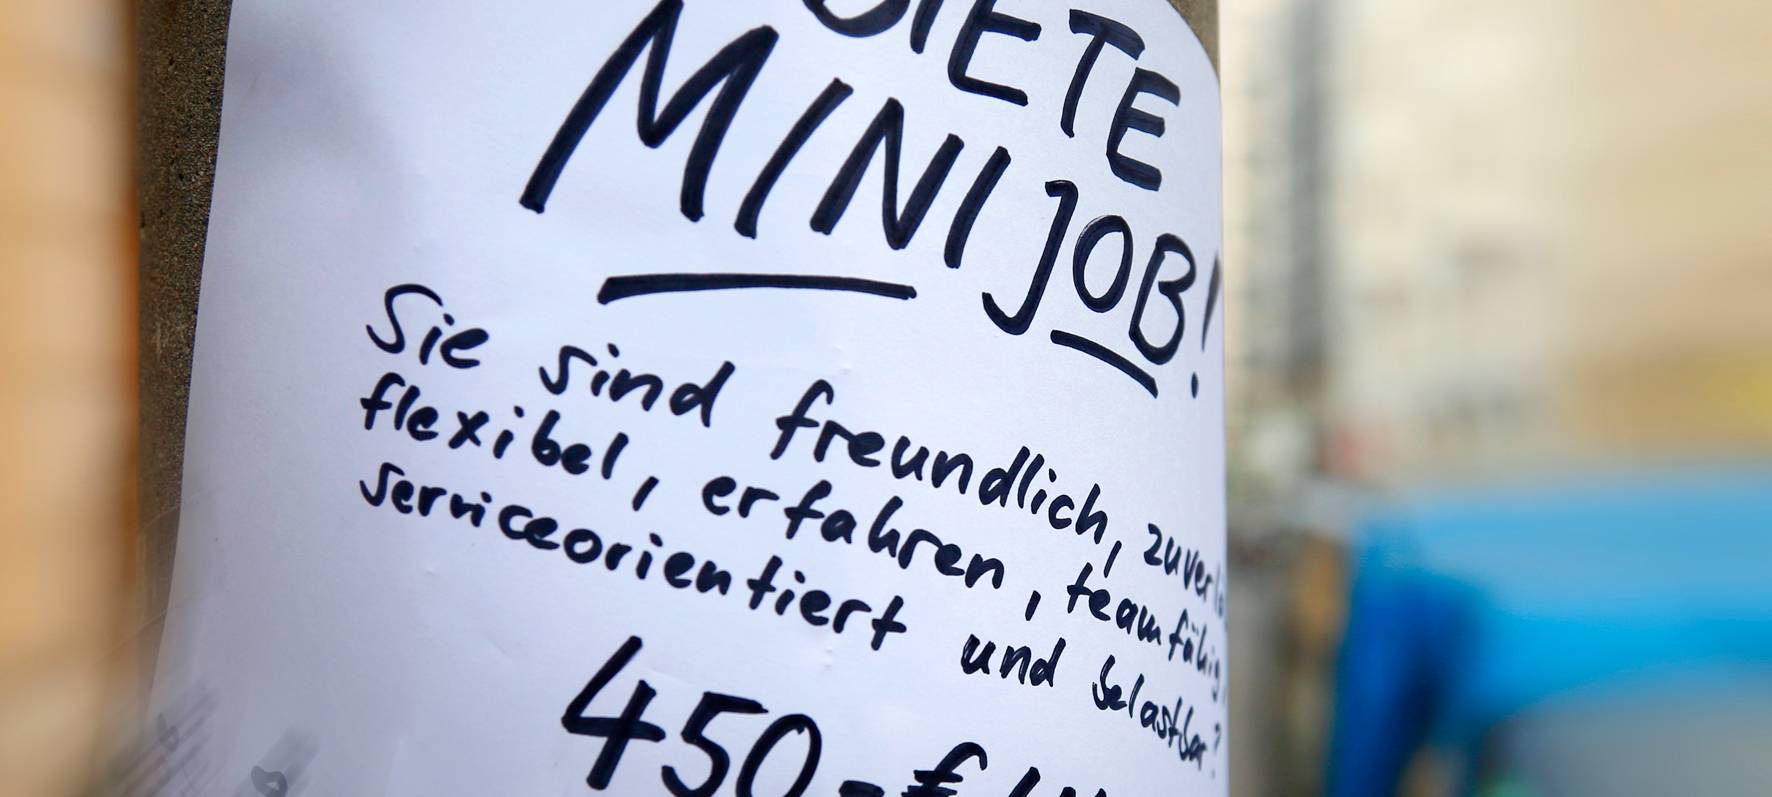 BIETE
MINIJOB!
Sie sind freundlich,
flexibel, erfahren, teamfähig,
serviceorientiert und belastbar?
450,-€